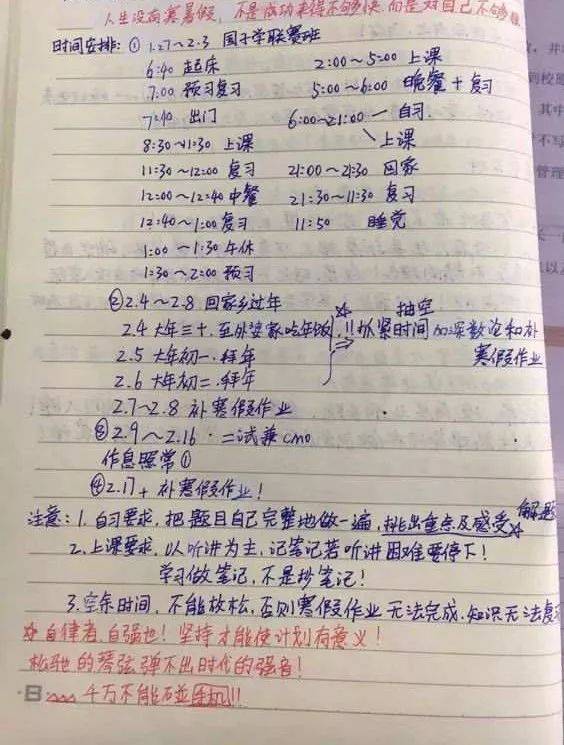 人生没有寒暑假，不是成功来得不够快，而是对自己不够狠
时间安排：① 1.27～2.3 国子学联赛班
6:40 起床 2:00～5:00 上课
7:00 预习复习 5:00～6:00 晚餐＋复习
7:40 出门 6:00～21:00 自习
上课
8:30～11:30 上课
11:30～12:00 复习 21:00～21:30 回家
12:00～12:40 中餐 21:30～11:30 复习
12:40～1:00 复习 11:50 睡觉
1:00～1:30 午休
1:30～2:00 预习
② 2.4～2.8 回家乡过年
2.4 大年三十，至外婆家吃年饭 ☆ 抽空
!! 抓紧时间加深数论和补
2.5 大年初一．拜年 寒假作业
2.6 大年初二．拜年
2.7～2.8 补寒假作业
③ 2.9～2.16．二试兼CMO
作息照常①
④ 2.17+ 补寒假作业！
注意：1. 自习要求，把题目自己完整地做一遍，挑出重点及感受☆解题
2. 上课要求，以听讲为主，记笔记若听讲困难要停下！
学习做笔记，不是抄笔记！
3. 空余时间，不能放松，否则寒假作业无法完成．知识无法复
☆自律者，自强也！坚持才能使计划有意义！
松弛的琴弦弹不出时代的强音！
千万不能碰手机!!